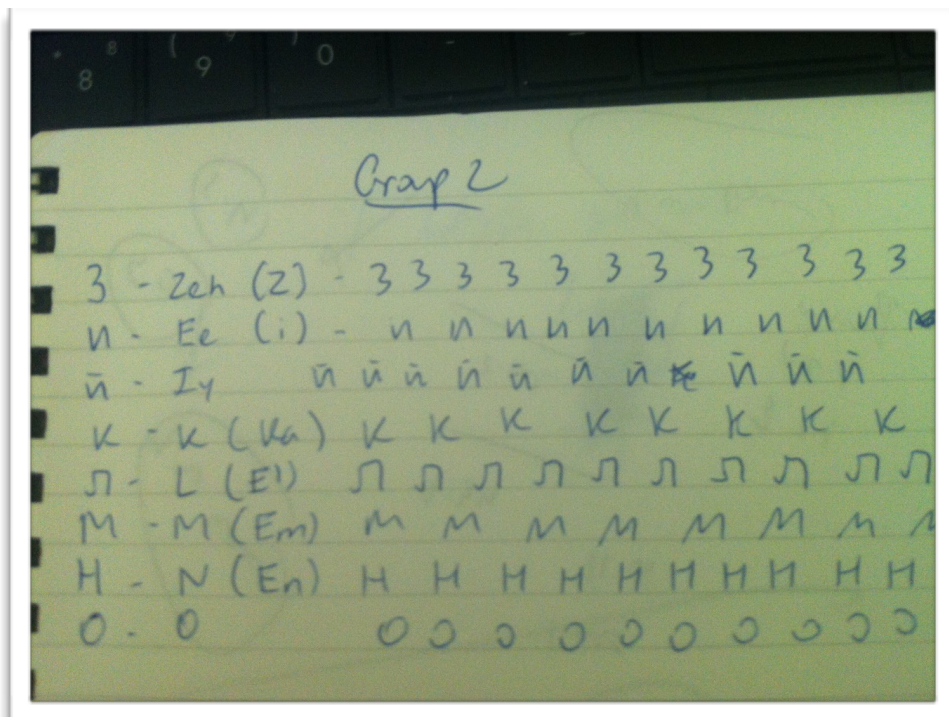 8 8 ( 9 9 ) 0 -
Group 2
З - Zeh (Z) - З З З З З З З З З З З З
и - Ee (i) - и и и и и и и и и и
й - Iy й й й й й й й й й й
к - K (Ka) К К К К К К К К
Л - L (El) Л Л Л Л Л Л Л Л Л Л
М - M (Em) М М М М М М М М
Н - N (En) Н Н Н Н Н Н Н Н Н Н
О - O О О О О О О О О О О